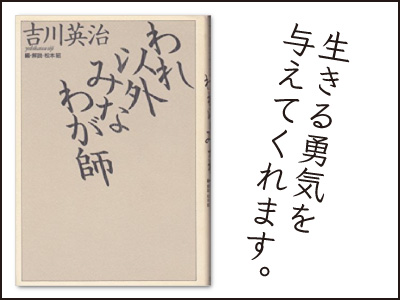 吉川英治
yoshikawa eiji
編・解説・松本昭
われ
以外
みな
わが師
生きる勇気を
与えてくれます。